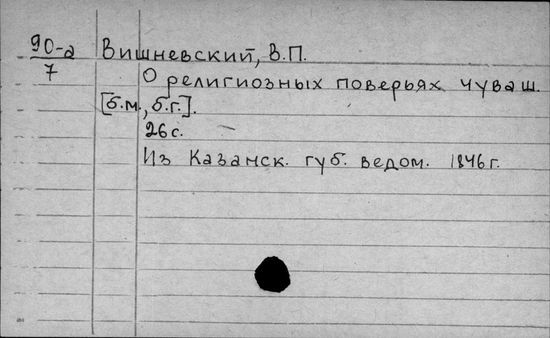 90-а Вишневский, В.П.
7 О религиозных поверьях чуваш.
[б.м., б.г.].
26 с.
Из Казанск. губ. ведом. 1846 г.